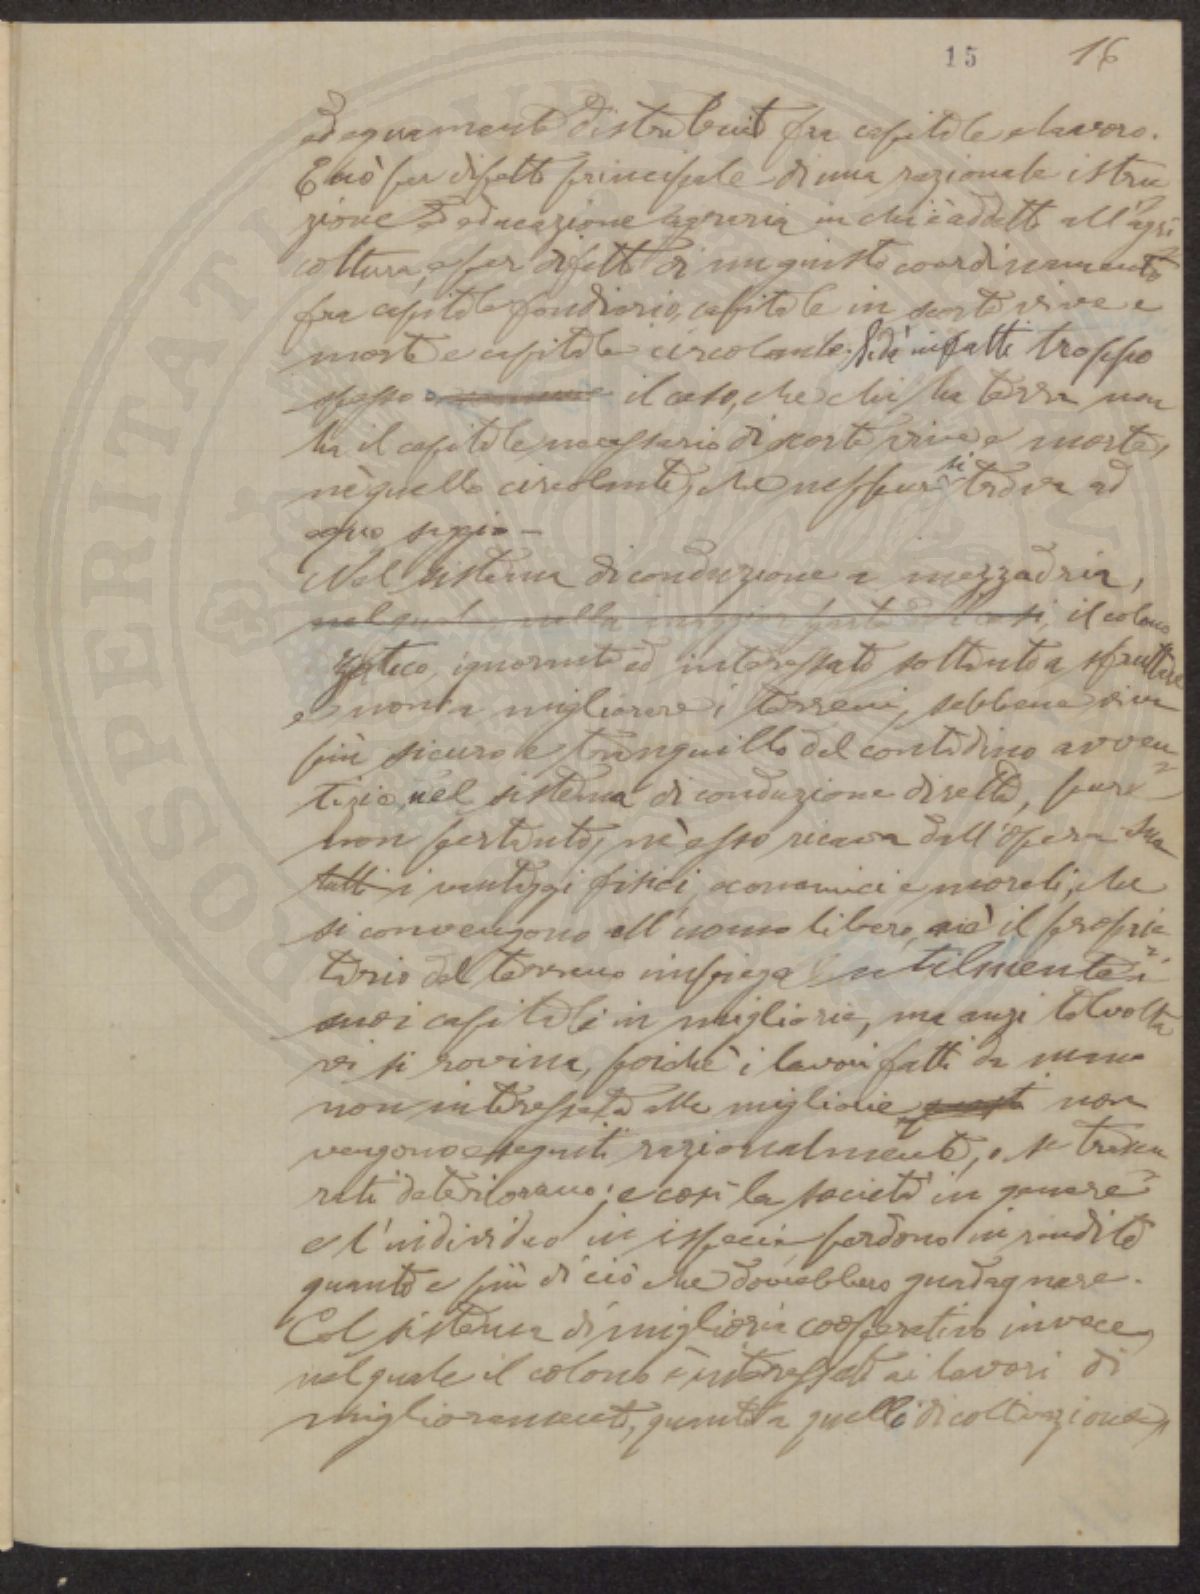 15 16
adeguamente distribuito fra capitale e lavoro.
E ciò per difetto principale di una razionale istru
zione ed educazione agraria in chi è addetto all'agri
coltura, e per difetto di un giusto coordinamento
fra capitale fondiario, capitale in scorte vive e
morte e capitale circolante. Si dà infatti troppo
spesso il caso, che chi ha terra non
ha il capitale necessario di scorte vive e morte,
nè quello circolante, che neppure si trova ad
equo saggio —
Nel sistema di conduzione a mezzadria,
nel quale nella maggior parte dei casi, il colono
zotico, ignorante ed interessato soltanto a sfruttare
e non a migliorare i terreni, sebbene viva
più sicuro e tranquillo del contadino avven
tizio, nel sistema di conduzione diretta, pure
non pertanto, nè esso ricava dall'opera sua
tutti i vantaggi fisici, economici e morali, che
si convengono all'uomo libero, nè il proprie
tario del terreno impiega utilmente i
suoi capitali in migliorie, ma anzi talvolta
vi si rovina, poichè i lavori fatti da mano
non interessata alle migliorie non
vengono eseguiti razionalmente, o se trascu
rati deteriorano; e così la società in genere
e l'individuo in ispecie perdono in rendita
quanto e più di ciò che dovrebbero guadagnare.
Col sistema di miglioria cooperativo invece,
nel quale il colono è interessato ai lavori di
miglioramento, quanto a quelli di coltivazione,